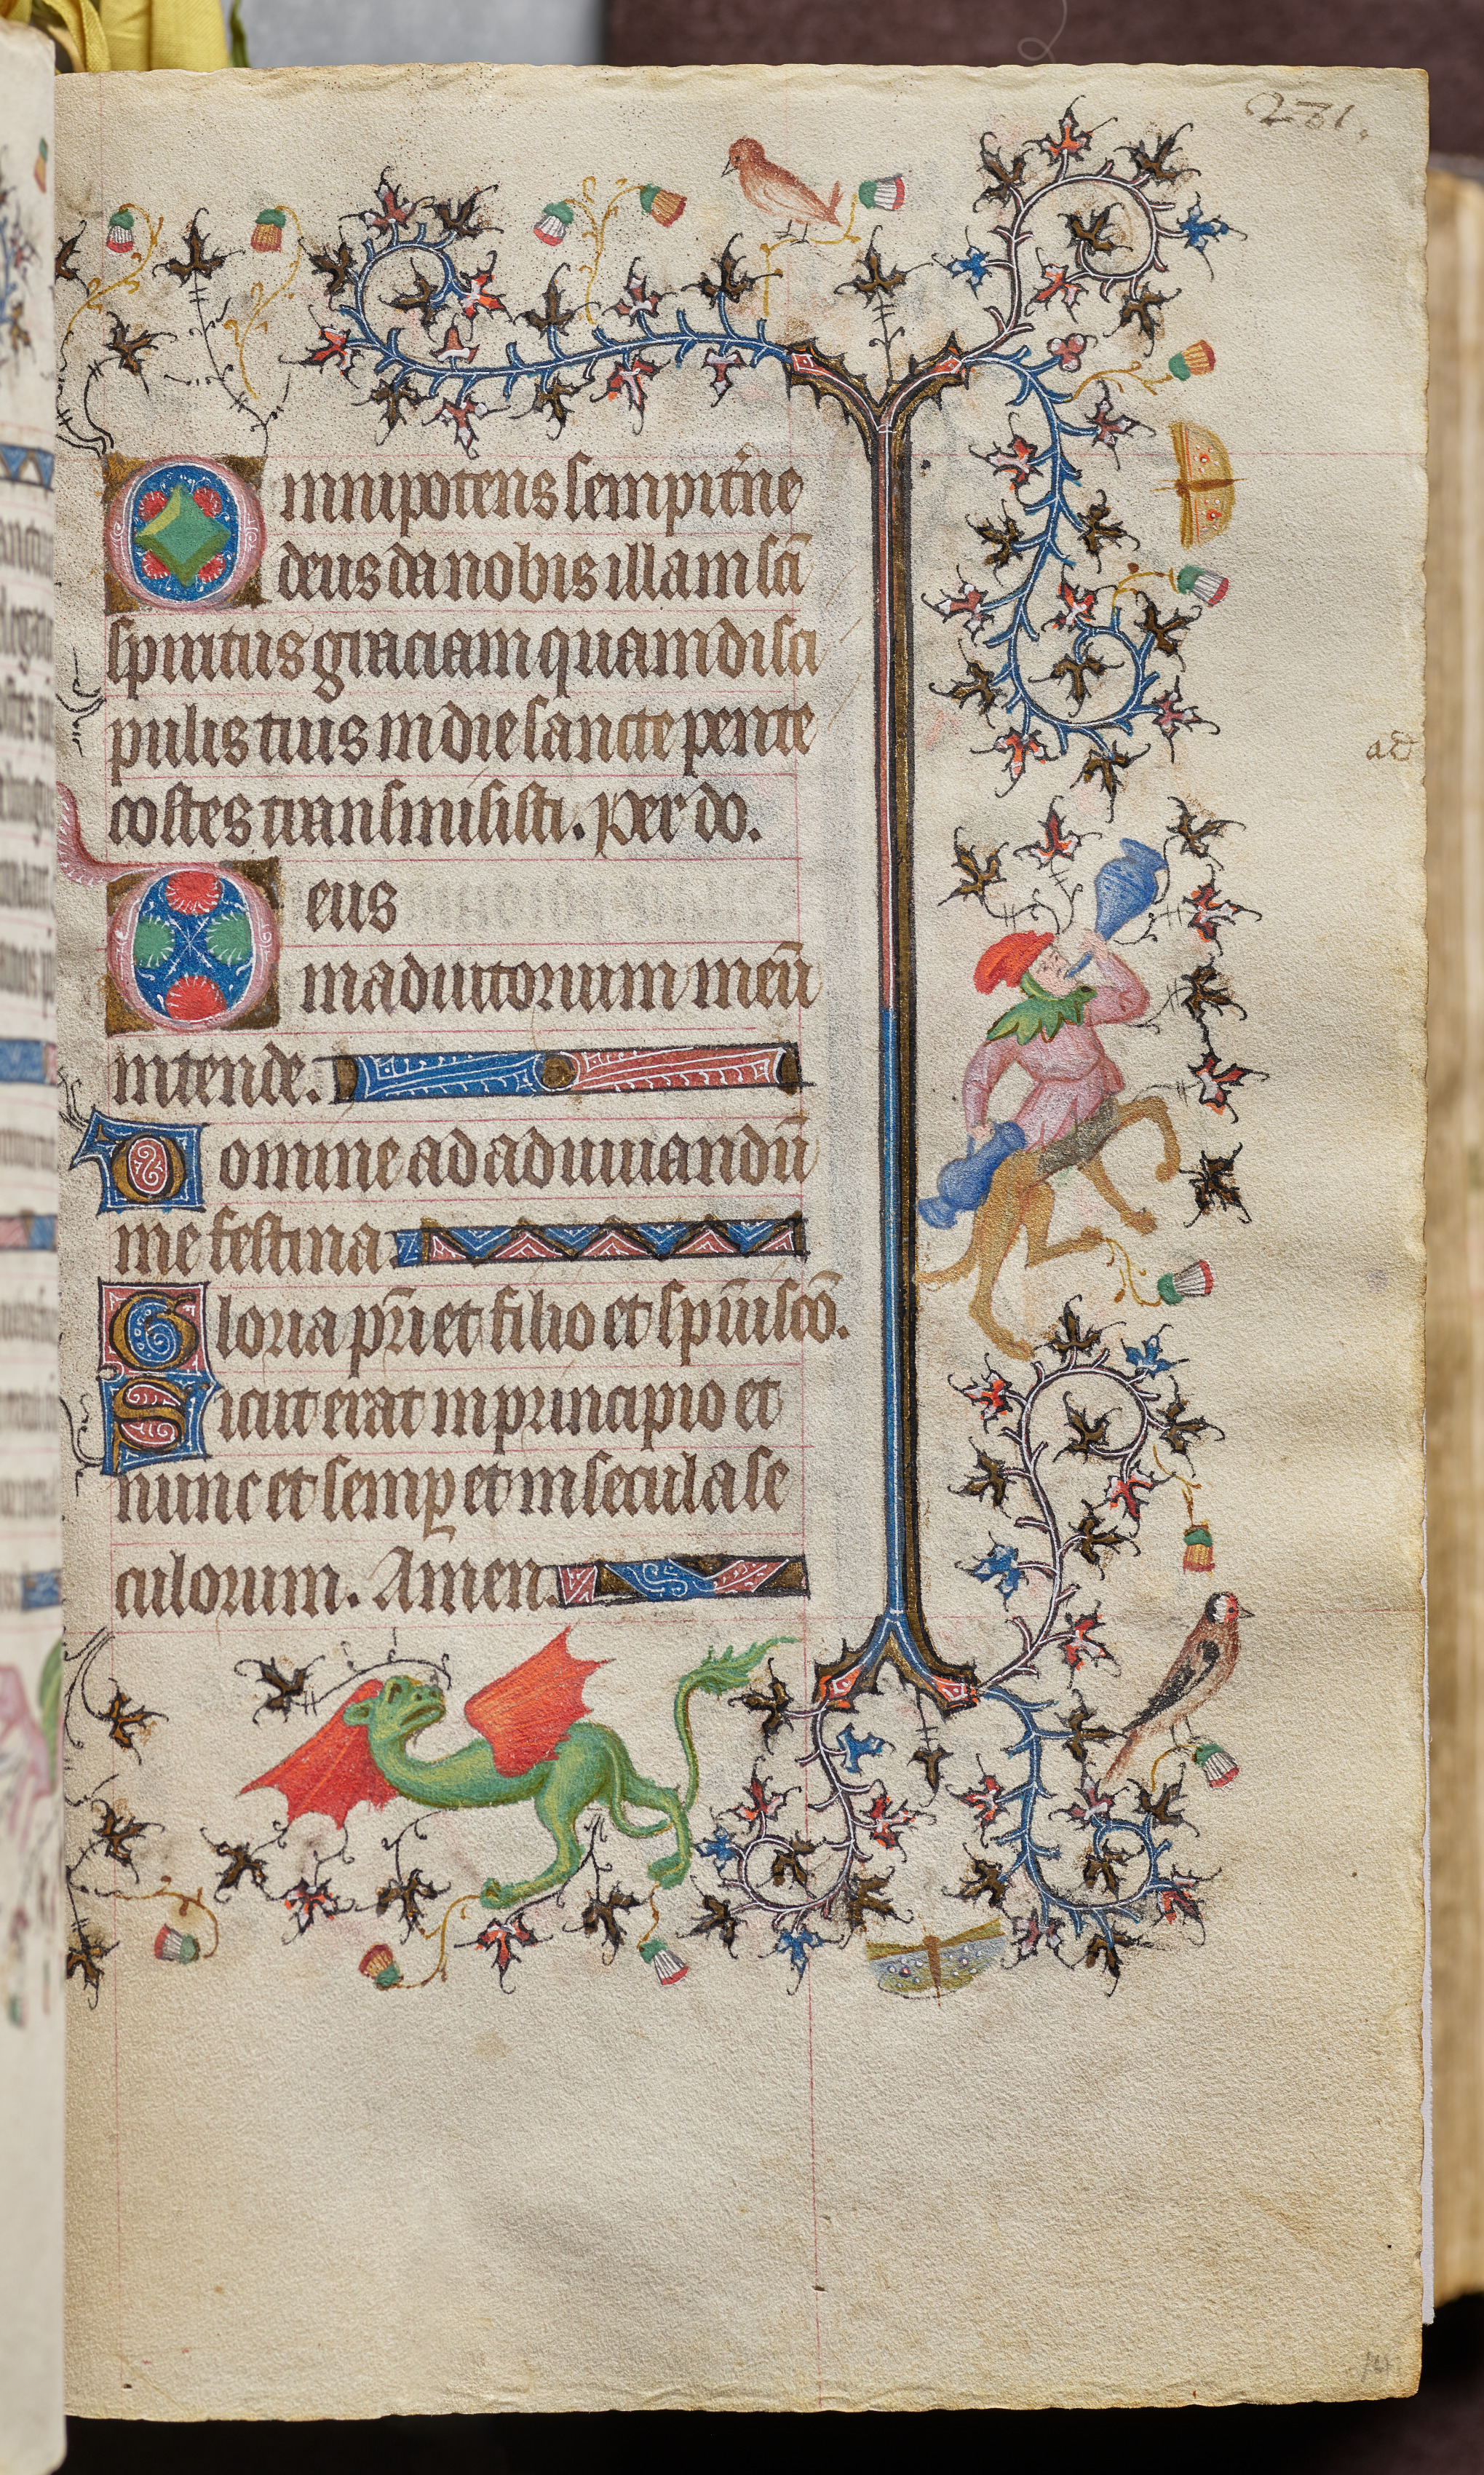 231.
Omnipotens sempit̾ne
deus da nobis illam sc̄i
spiritus graciam quam disci
pulis tuis in die sancte pente
costes transmisisti. Per do.
Deus
in adiutorium meū
intende.
Domine ad adiuuandū
me festina.
Gloria pr̄i et filio et spūi scō.
Sicut erat in principio et
nunc et semꝑ et in secula se
culorum. Amen.